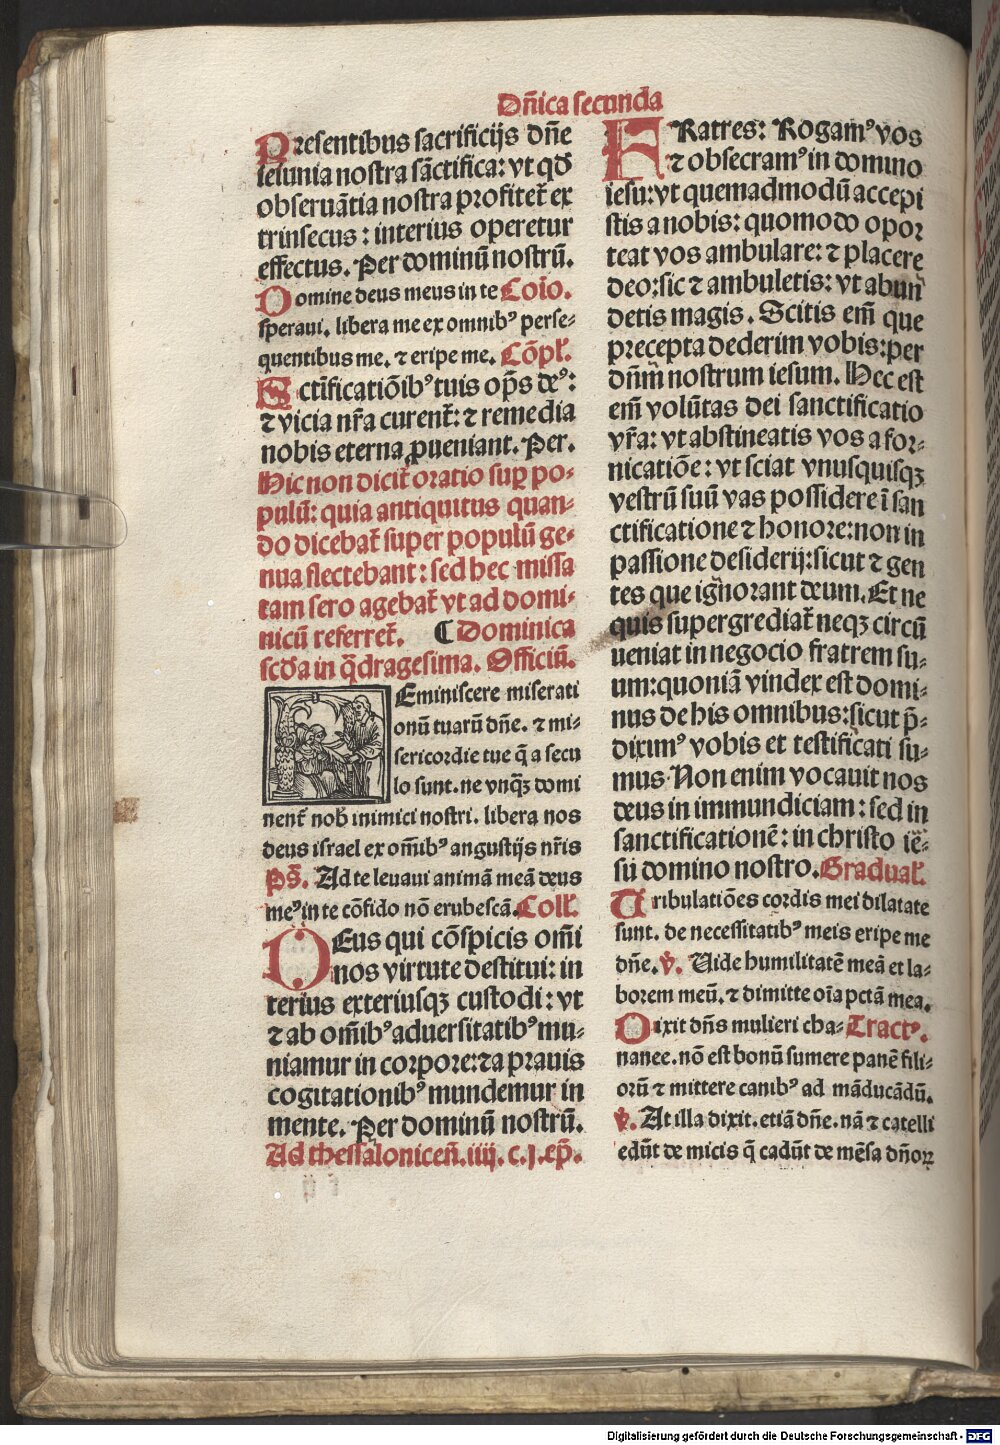 Dñica secunda
Presentibus sacrificijs dñe
ieiunia nostra sãctifica: vt qđ
obseruãtia nostra profitet̃ ex
trinsecus: interius operetur
effectus. Per dominũ nostrũ.
Domine deus meus in te Coĩo.
speraui. libera me ex omnibꝰ perse-
quentibus me. ⁊ eripe me. Cõpl̃.
Sctĩficatiõibꝰ tuis op̃s deꝰ:
⁊ vicia nr̃a curent̃: ⁊ remedia
nobis eterna ꝓueniant. Per.
Hic non dicit̃ oratio suꝑ po-
pulũ: quia antiquitus quan-
do dicebat̃ super populũ ge-
nua flectebant: sed hec missa
tam sero agebat̃ vt ad domi-
nicũ referret̃. ¶ Dominica
scđa in q̃dragesima. Officiũ.
Reminiscere miserati
onũ tuarũ dñe. ⁊ mi-
sericordie tue q̃ a secu
lo sunt. ne vnq̃ȝ domi
nent̃ nob̃ inimici nostri. libera nos
deus israel ex om̃ibꝰ angustijs nr̃is
Ps̃. Ad te leuaui animã meã deus
meꝰ in te cõfido nõ erubescã. Coll̃.
DEus qui cõspicis om̃i
nos virtute destitui: in
terius exteriusqȝ custodi: vt
⁊ ab om̃ibꝰ aduersitatibꝰ mu-
niamur in corpore: ⁊ a prauis
cogitationibꝰ mundemur in
mente. Per dominũ nostrũ.
Ad thessaloniceñ. iiij. c. j. ep̃.
FRatres: Rogamꝰ vos
⁊ obsecramꝰ in domino
iesu: vt quemadmodũ accepi
stis a nobis: quomodo opor
teat vos ambulare: ⁊ placere
deo: sic ⁊ ambuletis: vt abun
detis magis. Scitis em̃ que
precepta dederim vobis: per
dñm̃ nostrum iesum. Hec est
em̃ volũtas dei sanctificatio
vr̃a: vt abstineatis vos a for-
nicatiõe: vt sciat vnusquisqȝ
vestrũ suũ vas possidere ĩ san
ctificatione ⁊ honore: non in
passione desiderij: sicut ⁊ gen
tes que ignorant deum. Et ne
quis supergrediat̃ neqȝ circũ
ueniat in negocio fratrem su-
um: quoniã vindex est domi-
nus de his omnibus: sicut p̃-
diximꝰ vobis et testificati su-
mus. Non enim vocauit nos
deus in immundiciam: sed in
sanctificationẽ: in christo ie-
su domino nostro. Gradual̃.
Tribulatiões cordis mei dilatate
sunt. de necessitatibꝰ meis eripe me
dñe. ℣. Uide humilitatẽ meã et la-
borem meũ. ⁊ dimitte oĩa pctã mea.
Dixit dñs mulieri cha- Tractꝰ.
nanee. nõ est bonũ sumere panẽ fili-
orũ ⁊ mittere canibꝰ ad mãducãdũ.
℣. At illa dixit. etiã dñe. nã ⁊ catelli
edũt de micis q̃ cadũt de mẽsa dñoꝝ
Digitalisierung gefördert durch die Deutsche Forschungsgemeinschaft - DFG